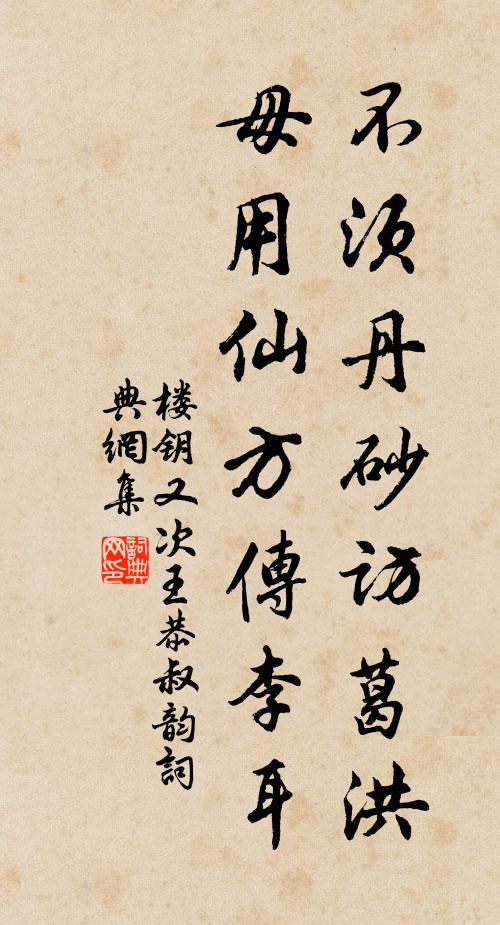 不须丹砂访葛洪
毋用仙方傳李耳
楼钥又次王恭叔韵詞
典網集
詞典网印